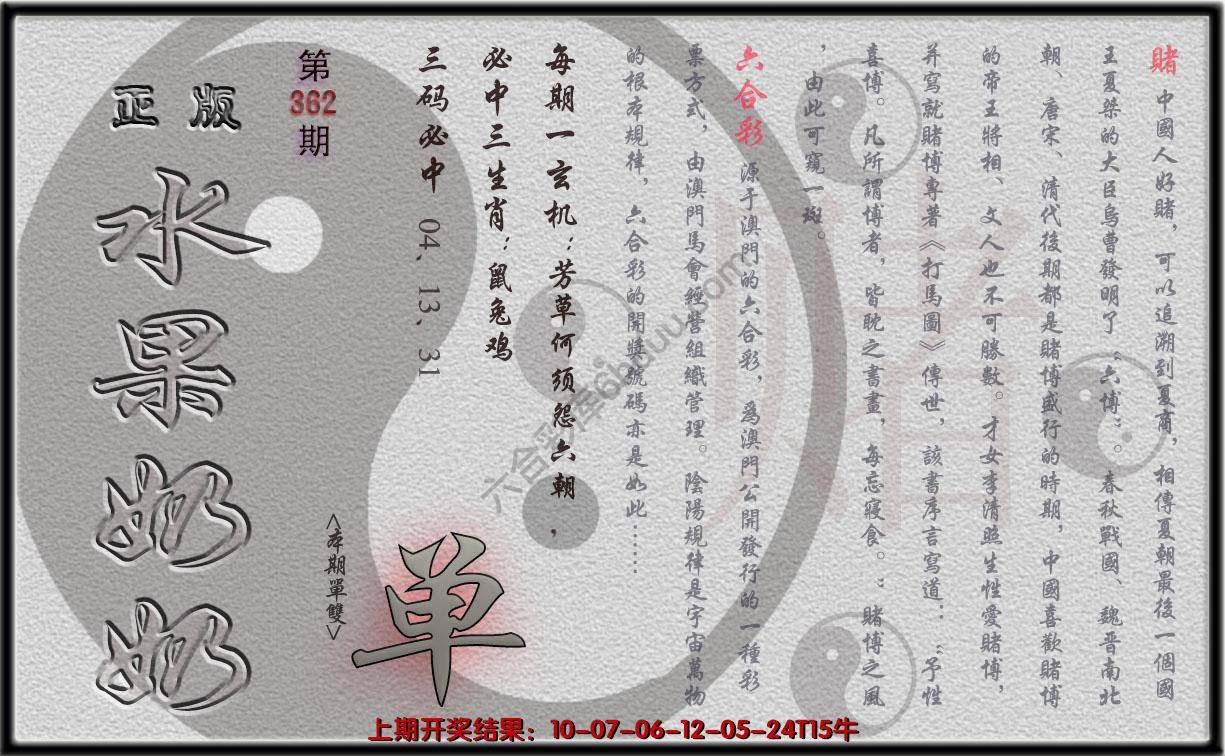 賭 中國人好賭，可以追溯到夏商，相傳夏朝最後一個國
王夏桀的大臣烏曹發明了“六博”。春秋戰國、魏晋南北
朝、唐宋、清代後期都是賭博盛行的時期，中國喜歡賭博
的帝王將相、文人也不可勝數。才女李清照生性愛賭博，
并寫就賭博專著《打馬圖》傳世，該書序言寫道：“予性
喜博。凡所謂博者，皆耽之書畫，每忘寢食。”賭博之風
，由此可窺一斑。
六合彩 源于澳門的六合彩，爲澳門公開發行的一種彩
票方式，由澳門馬會經營組織管理。陰陽規律是宇宙萬物
的根本規律，六合彩的開獎號碼亦是如此……
每期一玄机：芳草何须怨六朝，
必中三生肖：鼠兔鸡
三码必中 04、13、31
第
362
期
<本期單雙>
单
正版
水果奶奶
賭
六合彩库6hduu.com
上期开奖结果：10-07-06-12-05-24T15牛